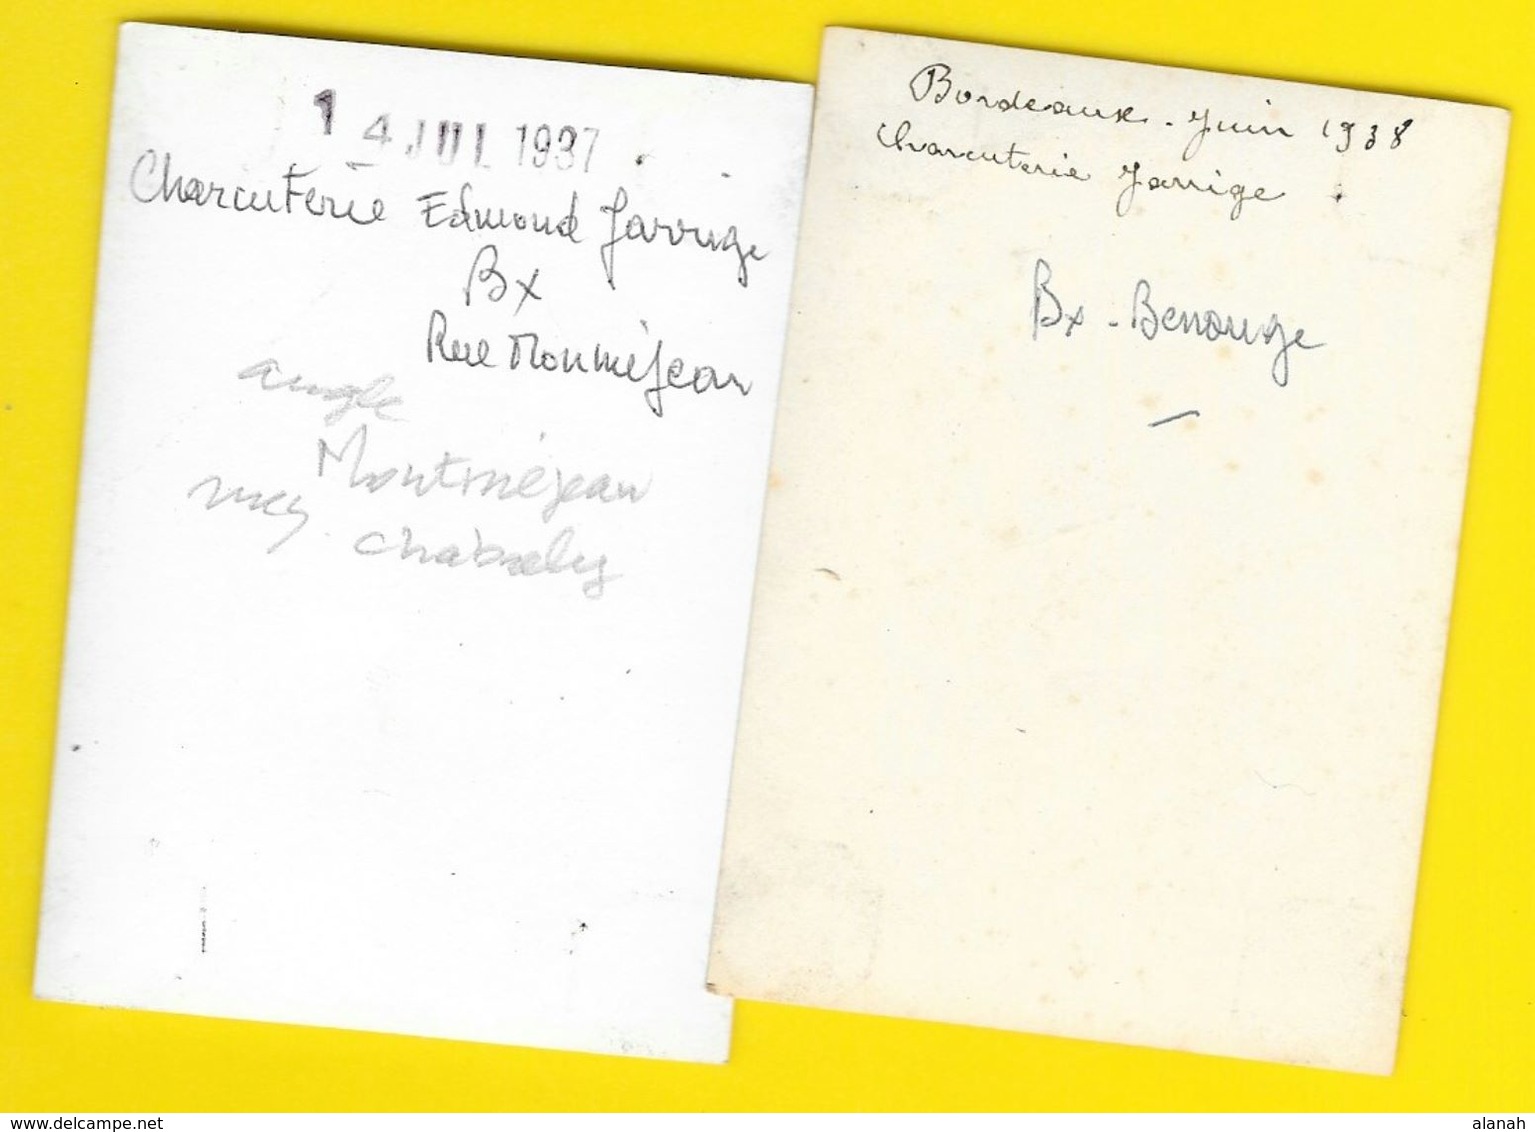 14 JUL 1937
Charcuterie Edmond Jarrige
Bx
Rue Monméjean
angle
Montméjean
rues chabrely
Bordeaux - Juin 1938
Charcuterie Jarrige
Bx - Benauge
www.delcampe.net
alanah